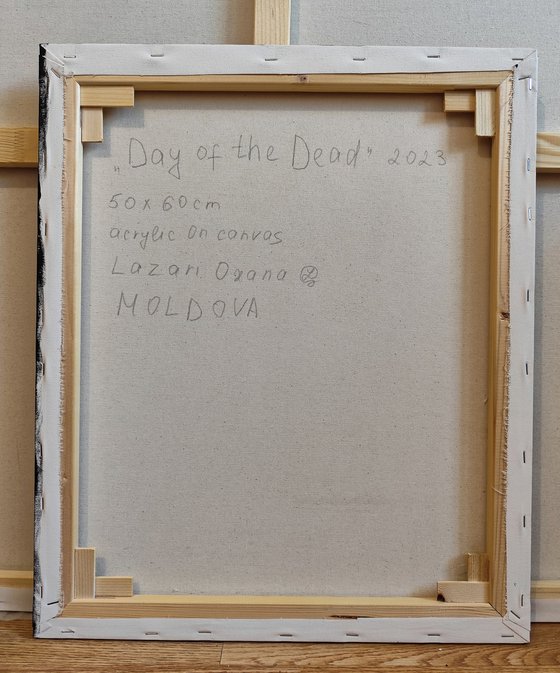 „Day of the Dead" 2023
50 x 60 cm
acrylic on canvas
Lazari Oxana
MOLDOVA